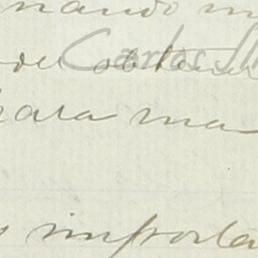 nando m
de obtener
para ma
s importa